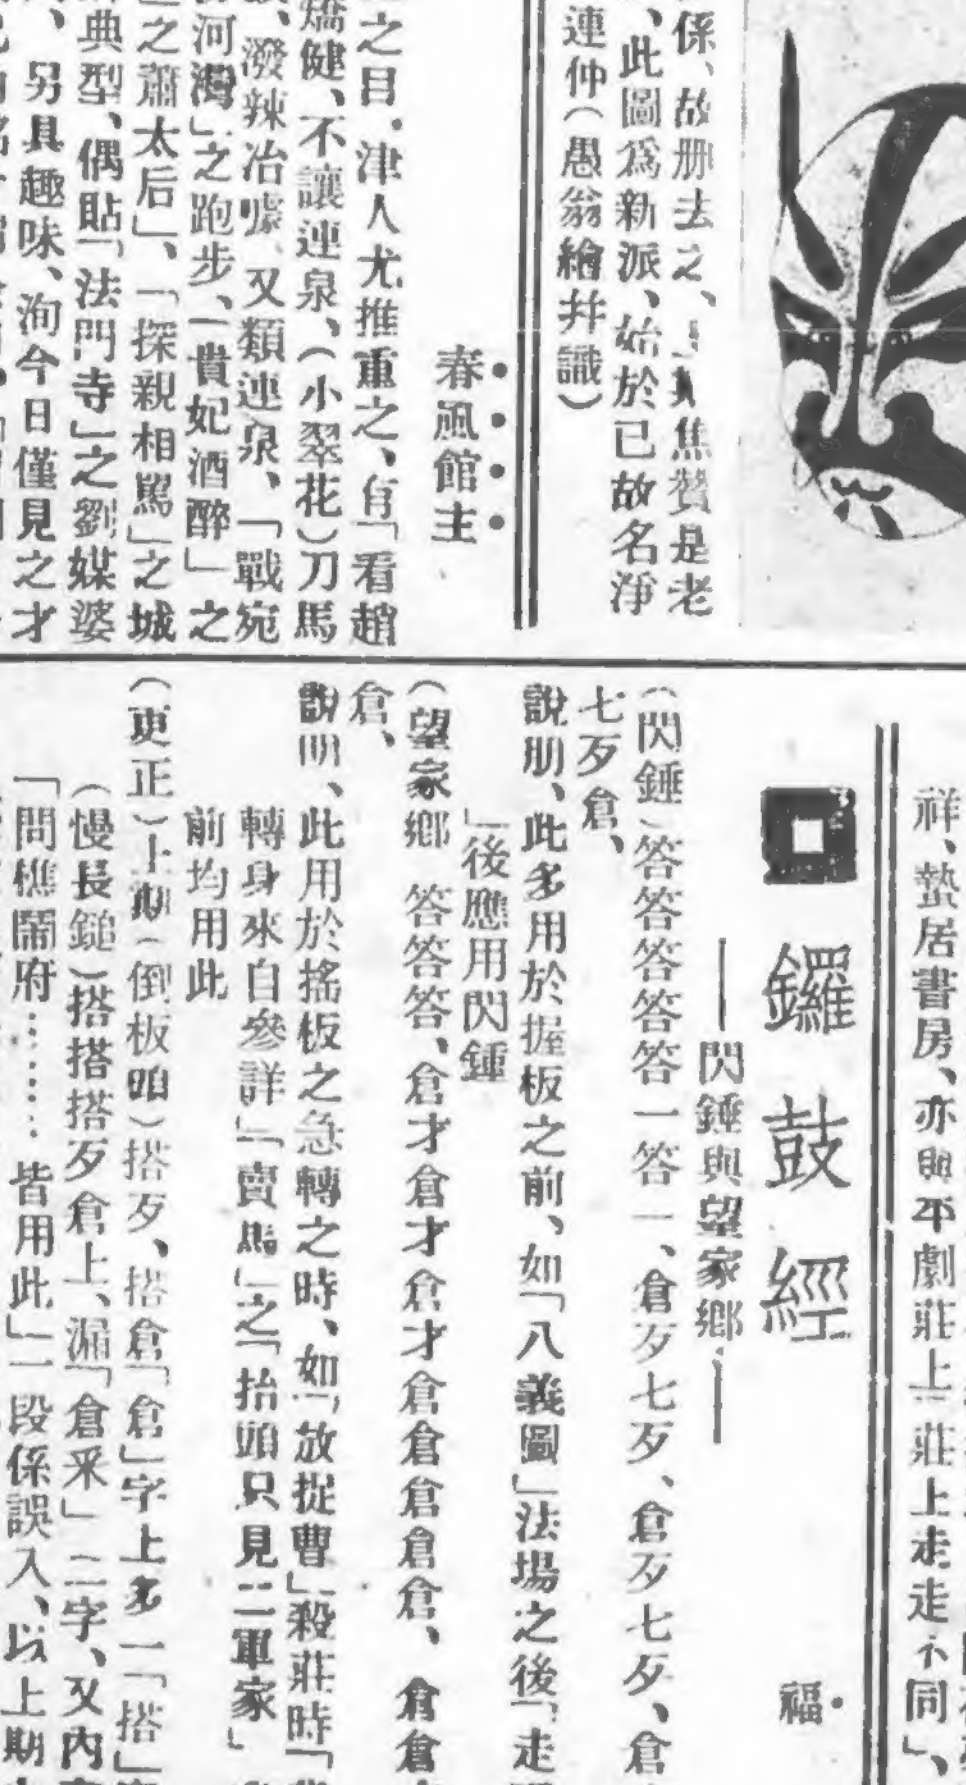 係、故删去之、
焦贊是老
、此圖爲新派、始於已故名淨
連仲(愚翁繪幷識)
春風館主
之目．津人尤推重之、有「看趙
矯健、不讓連泉、(小翠花)刀馬
、潑辣冶
、又類連泉、「戰宛
河灣」之跑步、「貴妃酒醉」之
之蕭太后」、「探親相駡」之城
典型、偶貼「法門寺」之劉媒婆
、另具趣味、洵今日僅見之才
祥、蟄居書房、亦與平劇莊上一莊上走走不同」、
鑼鼓經
福
——閃錘與望家鄉——
(閃錘)答答答答答一答一、倉歹七歹、倉歹七歹、倉
七歹倉、
說明、此多用於握板之前、如「八義圖」法場之後「走
」後應用閃錘
(望家鄉 答答答、倉才倉才倉才倉倉倉倉倉、倉倉
倉、
說明、此用於搖板之急轉之時、如「放捉曹」殺莊時「
轉身來自參詳」「賣馬」之「抬頭只見二軍家」
前均用此
(更正)上期(倒板頭)搭歹、搭倉「倉」字上多一「搭」
(慢長鎚)搭搭搭歹倉上、漏「倉釆」二字、又內
「問樵鬧府……皆用此」一段係誤入、以上期